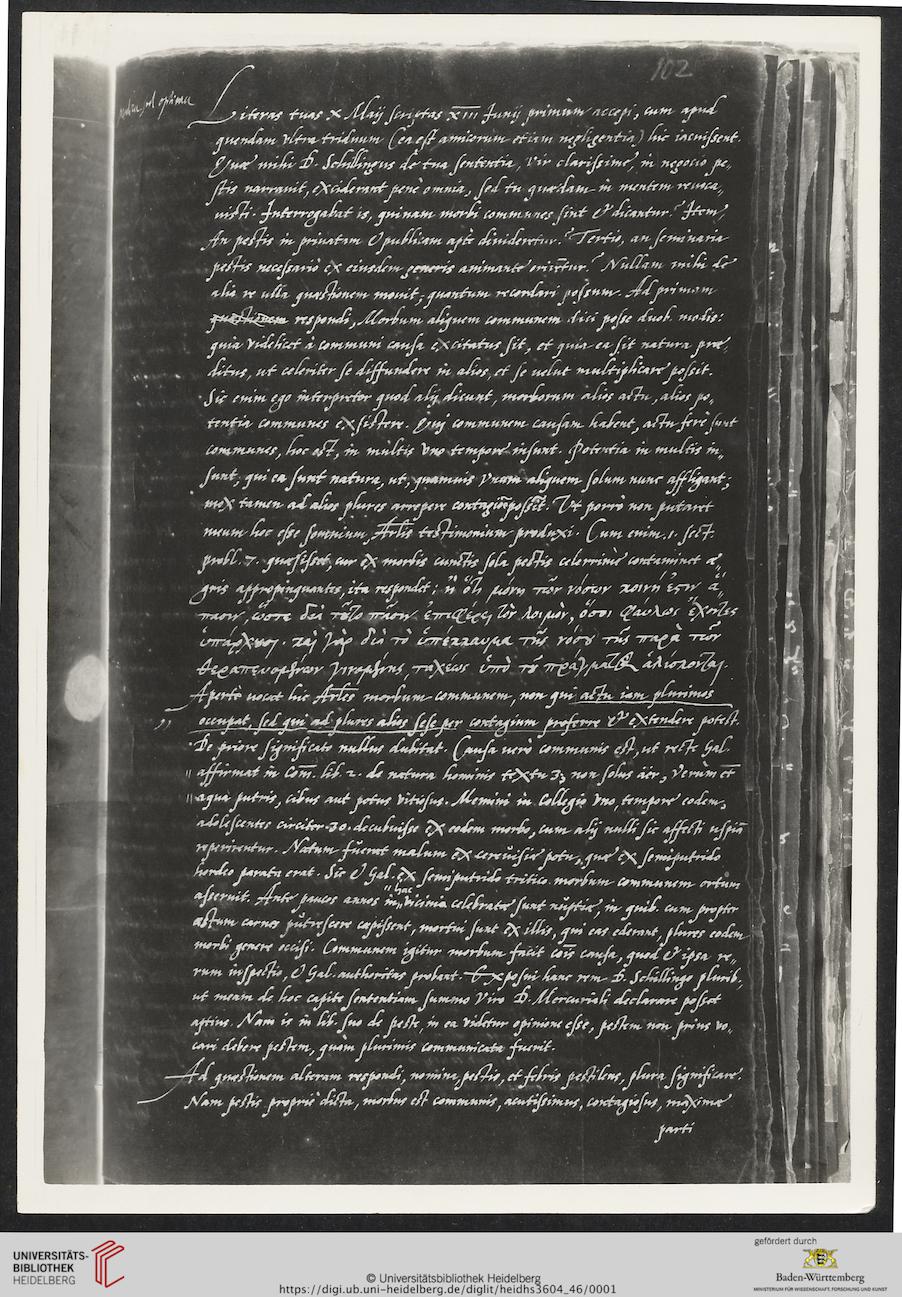 102
Literas tuas X Maij scriptas XIII Junij primùm accepi, cum apud
quendam vltra triduum (ea est amicorum etiam negligentia) hic iacuissent.
Quae mihi D. Schillingus de tua sententia, vir clarissime, in negocio pe„
stis narrauit, exciderant penè omnia, sed tu quaedam in mentem reuoca„
uisti. Interrogabat is, quinam morbi communes sint & dicantur? Item,
An pestis in priuatam & publicam aptè diuideretur? Tertio, an seminaria
pestis necessariò ex eiusdem generis animante orirētur? Nullam mihi de
alia re ulla quaestionem mouit, quantum recordari possum. Ad primam
quaestionem respondi, Morbum aliquem communem dici posse duob. modis:
quia videlicet à communi causa excitatus sit, et quia ea sit natura prae„
ditus, ut celeriter se diffundere in alios, et se uelut multiplicare possit.
Sic enim ego interpretor quod alij dicunt, morborum alios actu, alios po„
tentia communes existere. Qui communem causam habent, actu ferè sunt
communes, hoc est, in multis vno tempore insunt. Potentia in multis in„
sunt, qui ea sunt natura, ut, quamuis vnum aliquem solum nunc affligant,
mox tamen ad alios plures arrepere contagiōe possīt. Ut porrò non putaret
meum hoc esse somnium, Arlis testimonium produxi. Cum enim .1. sect.
probl. 7. quaesisset cur ex morbis cunctis sola pestis celerrimè contaminet ae„
gris appropinquantes, ita respondet: ἢ ὅτι μόνη τῶν νόσων κοινή ἐστιν ἅ„
πασιν, ὥστε διὰ τοῦτο πᾶσιν ἐπιφέρει τὸν λοιμὸν, ὅσοι φαύλως ἔχοντες
ὑπάρχουσι. καὶ γὰρ διὰ τὸ ὑπέκκαυμα τῆς νόσου τῆς παρὰ τῶν
θεραπευομένων γινομένης, ταχέως ὑπὸ τοῦ πράγματος ἁλίσκονται.
Apertè uocat hic Arles morbum communem, non qui actu iam plurimos
occupat, sed qui ad plures alios sese per contagium proferre & extendere potest.
De priore significato nullus dubitat. Causa verò communis est, ut rectè Gal.
affirmat in Com̄. lib. 2. de natura hominis textu 33 non solus aër, verùm et̄
aqua putris, cibus aut potus vitiosus. Memini in Collegio vno tempore eodem,
adolescentes circiter 30. decubuisse ex eodem morbo, cum alij nulli sic affecti uspiā
reperirentur. Natum fuerat malum ex cereuisiae potu, quae ex semiputrido
hordeo parata erat. Sic & Gal. ex semiputrido tritico morbum communem ortum
asseruit. Ante paucos annos in hac vicinia celebratae sunt nuptiae, in quib. cum propter
aestum carnes putrescere coepissent, mortui sunt ex illis, qui eas ederant, plures eodem
morbi genere occisi. Communem igitur morbum facit cōīs causa, quod & ipsa re„
rum inspectio, & Gal. authoritas probant. Exposui hanc rem D. Schillingo plurib.
ut meam de hoc capite sententiam summo viro D. Mercuriali declarare posset
aptius. Nam is in lib. suo de peste, in ea videtur opinione esse, pestem non prius vo„
cari debere pestem, quàm plurimis communicata fuerit.
Ad quaestionem alteram respondi, nomina, pestis, et febris pestilens, plura significare.
Nam pestis propriè dicta, morbus est communis, acutissimus, contagiosus, maximae
parti
UNIVERSITÄTS-
BIBLIOTHEK
HEIDELBERG
© Universitätsbibliothek Heidelberg
https://digi.ub.uni-heidelberg.de/diglit/heidhs3604_46/0001
gefördert durch
Baden-Württemberg
MINISTERIUM FÜR WISSENSCHAFT, FORSCHUNG UND KUNST